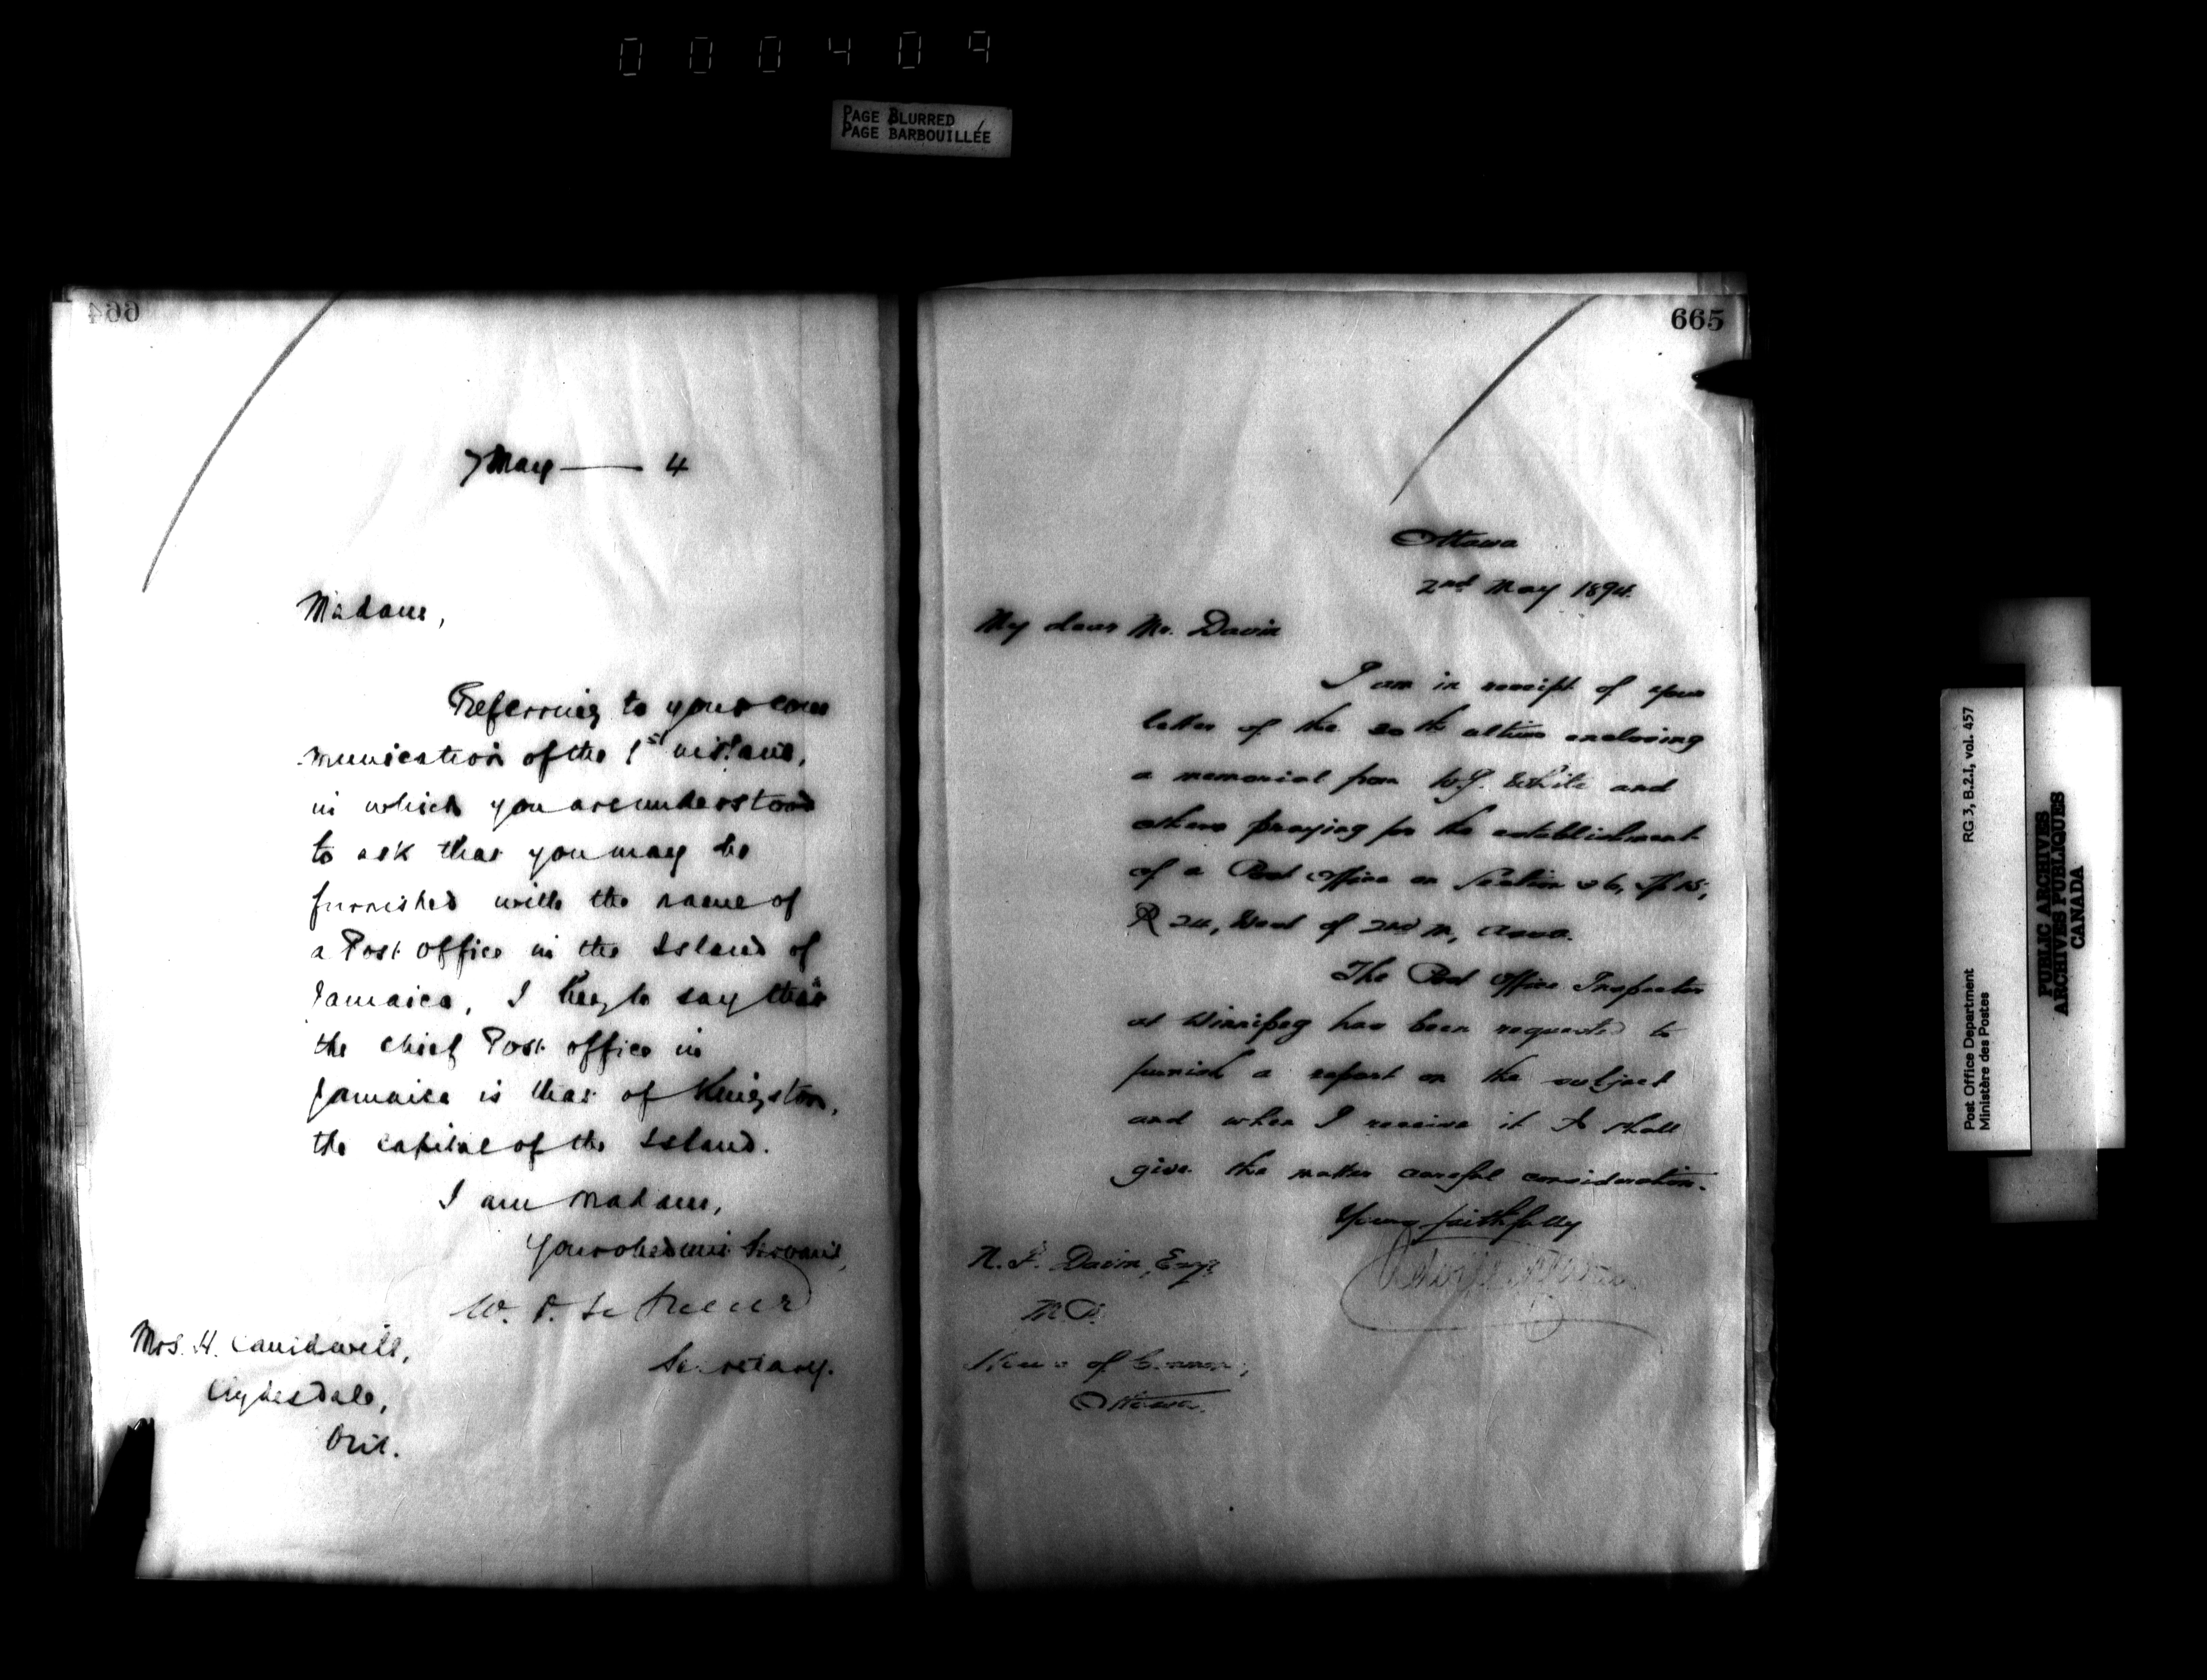 000409
PAGE BLURRED
PAGE BARBOUILLÉE
664
7 May — 4
Madam,
Referring to your com
munication of the 1st instant,
in which you are understood
to ask that you may be
furnished with the name of
a Post office in the Island of
Jamaica, I beg to say that
the chief Post office in
Jamaica is that of Kingston,
the capital of the Island.
I am Madam,
Your obedient Servant,
W. D. LeSueur
Secretary.
Mrs. H.
Clydesdale,
Ont.
665
Ottawa
2nd May 1894.
My dear Mr. Davin
I am in receipt of your
letter of the 20th ultimo enclosing
a memorial from W.J. White and
others praying for the establishment
of a Post Office on Section 26, Tp 15,
R 24, West of 2nd M, Assa.
The Post Office Inspector
at Winnipeg has been requested to
furnish a report on the subject
and when I receive it I shall
give the matter careful consideration.
Yours faithfully
N. F. Davin, Esq.
M.P.
House of Commons,
Ottawa.
Post Office Department
Ministère des Postes
RG 3, B.2.I, vol. 457
PUBLIC ARCHIVES
ARCHIVES PUBLIQUES
CANADA